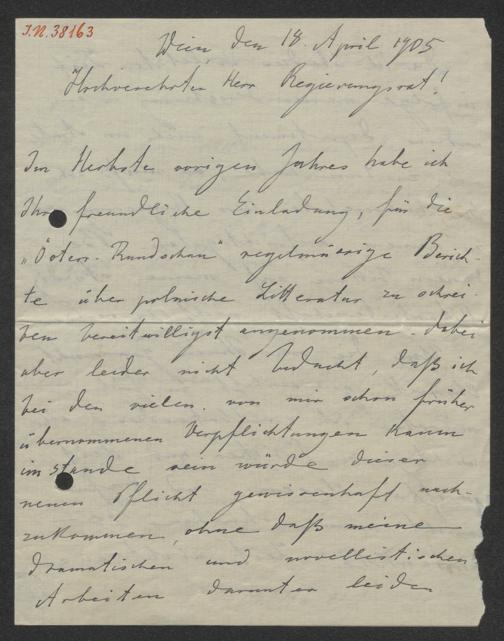 J.N. 38163
Wien, den 18. April 1905
Hochverehrter Herr Regierungsrat!
Im Herbste vorigen Jahres habe ich
Ihre freundliche Einladung, für die
„Österr. Rundschau" regelmässige Berich-
te über polnische Litteratur zu schrei-
ben bereitwilligst angenommen. dabei
aber leider nicht bedacht, daß ich
bei den vielen, von mir schon früher
übernommenen Verpflichtungen kaum
im stande sein würde dieser
neuen Pflicht gewissenhaft nach-
zukommen, ohne daß meine
dramatischen und novellistischen
Arbeiten darunter leiden